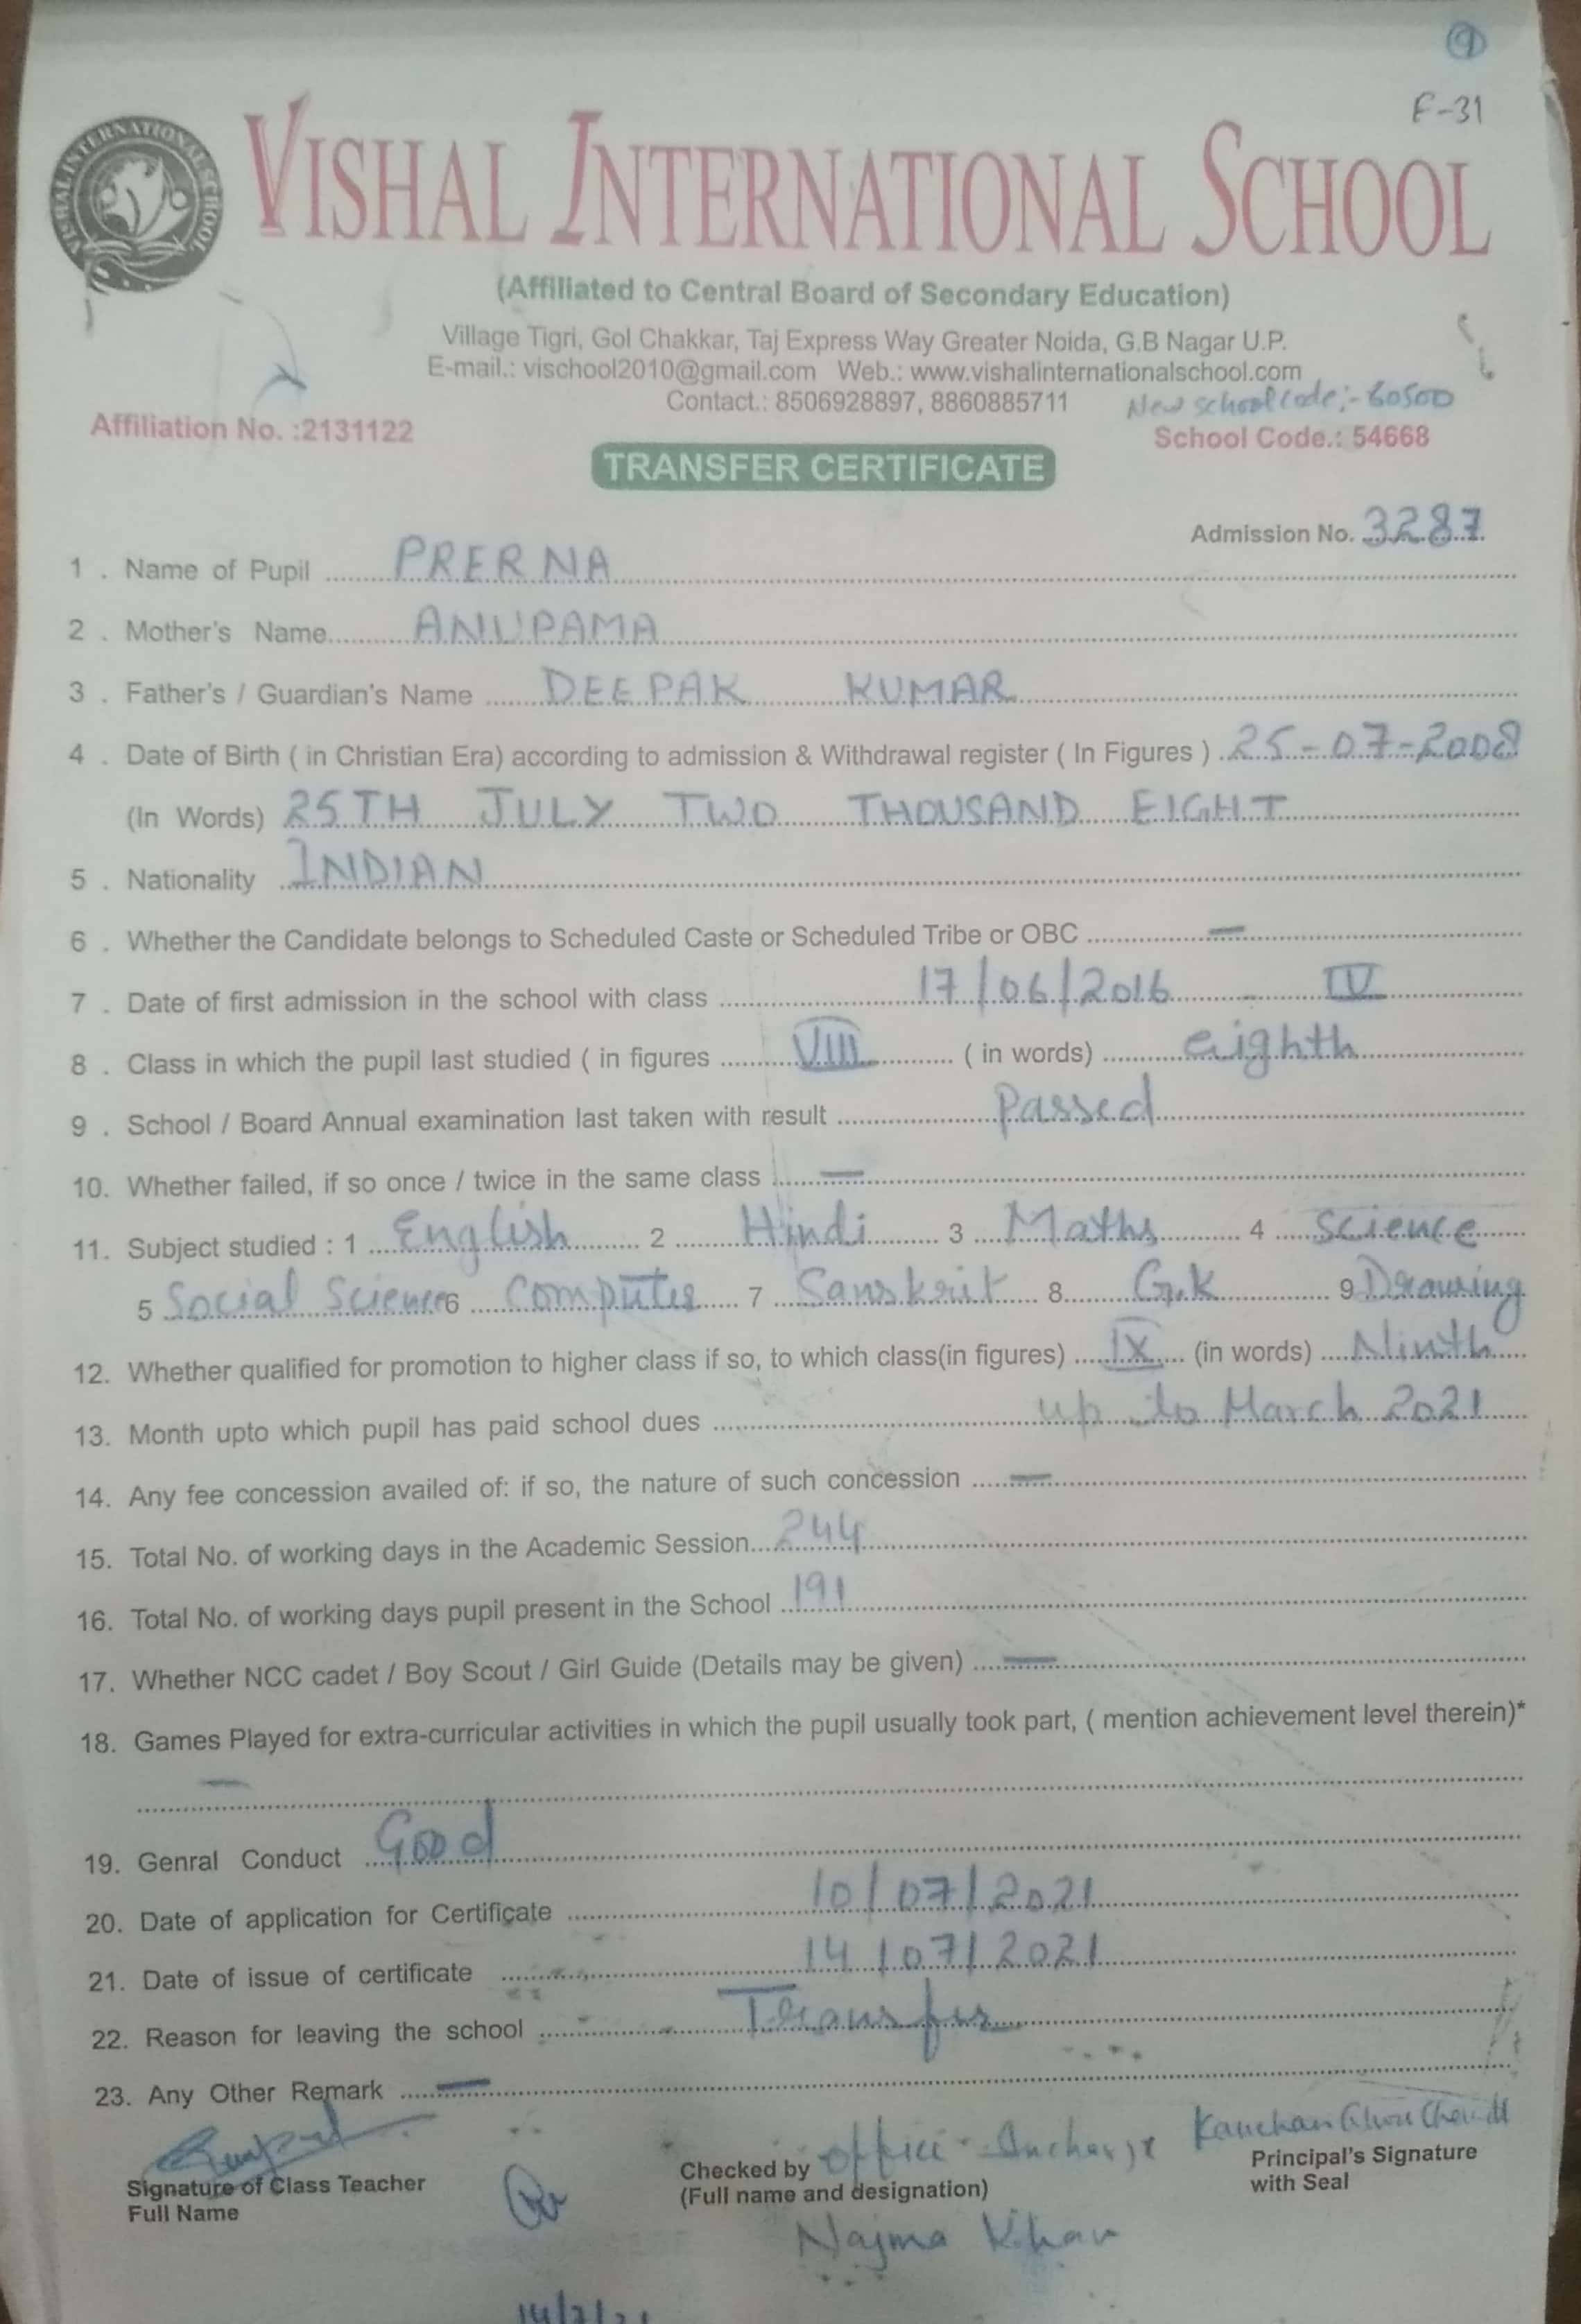 9
F-31
VISHAL INTERNATIONAL SCHOOL
VISHAL INTERNATIONAL SCHOOL
(Affiliated to Central Board of Secondary Education)
Village Tigri, Gol Chakkar, Taj Express Way Greater Noida, G.B Nagar U.P.
E-mail.: vischool2010@gmail.com Web.: www.vishalinternationalschool.com
Contact.: 8506928897, 8860885711 New school code:- 60500
Affiliation No. :2131122 School Code.: 54668
TRANSFER CERTIFICATE
Admission No. 3287
1 . Name of Pupil PRERNA
2 . Mother's Name ANUPAMA
3 . Father's / Guardian's Name DEEPAK KUMAR
4 . Date of Birth ( in Christian Era) according to admission & Withdrawal register ( In Figures ) 25-07-2008
(In Words) 25TH JULY TWO THOUSAND EIGHT
5 . Nationality INDIAN
6 . Whether the Candidate belongs to Scheduled Caste or Scheduled Tribe or OBC —
7 . Date of first admission in the school with class 17/06/2016 - IV
8 . Class in which the pupil last studied ( in figures VIII ( in words) eighth
9 . School / Board Annual examination last taken with result Passed
10. Whether failed, if so once / twice in the same class —
11. Subject studied : 1 English 2 Hindi 3 Maths 4 Science
5 Social Science 6 Computer 7 Sanskrit 8 G.K 9 Drawing
12. Whether qualified for promotion to higher class if so, to which class(in figures) IX (in words) Ninth
13. Month upto which pupil has paid school dues up to March 2021
14. Any fee concession availed of: if so, the nature of such concession —
15. Total No. of working days in the Academic Session 244
16. Total No. of working days pupil present in the School 191
17. Whether NCC cadet / Boy Scout / Girl Guide (Details may be given) —
18. Games Played for extra-curricular activities in which the pupil usually took part, ( mention achievement level therein)*
—
19. Genral Conduct Good
20. Date of application for Certificate 10/07/2021
21. Date of issue of certificate 14/07/2021
22. Reason for leaving the school Transfer
23. Any Other Remark —
Signature of Class Teacher
Full Name
Checked by Office Incharge
(Full name and designation)
Najma Khan
Kanchan
Principal's Signature
with Seal
14/7/21